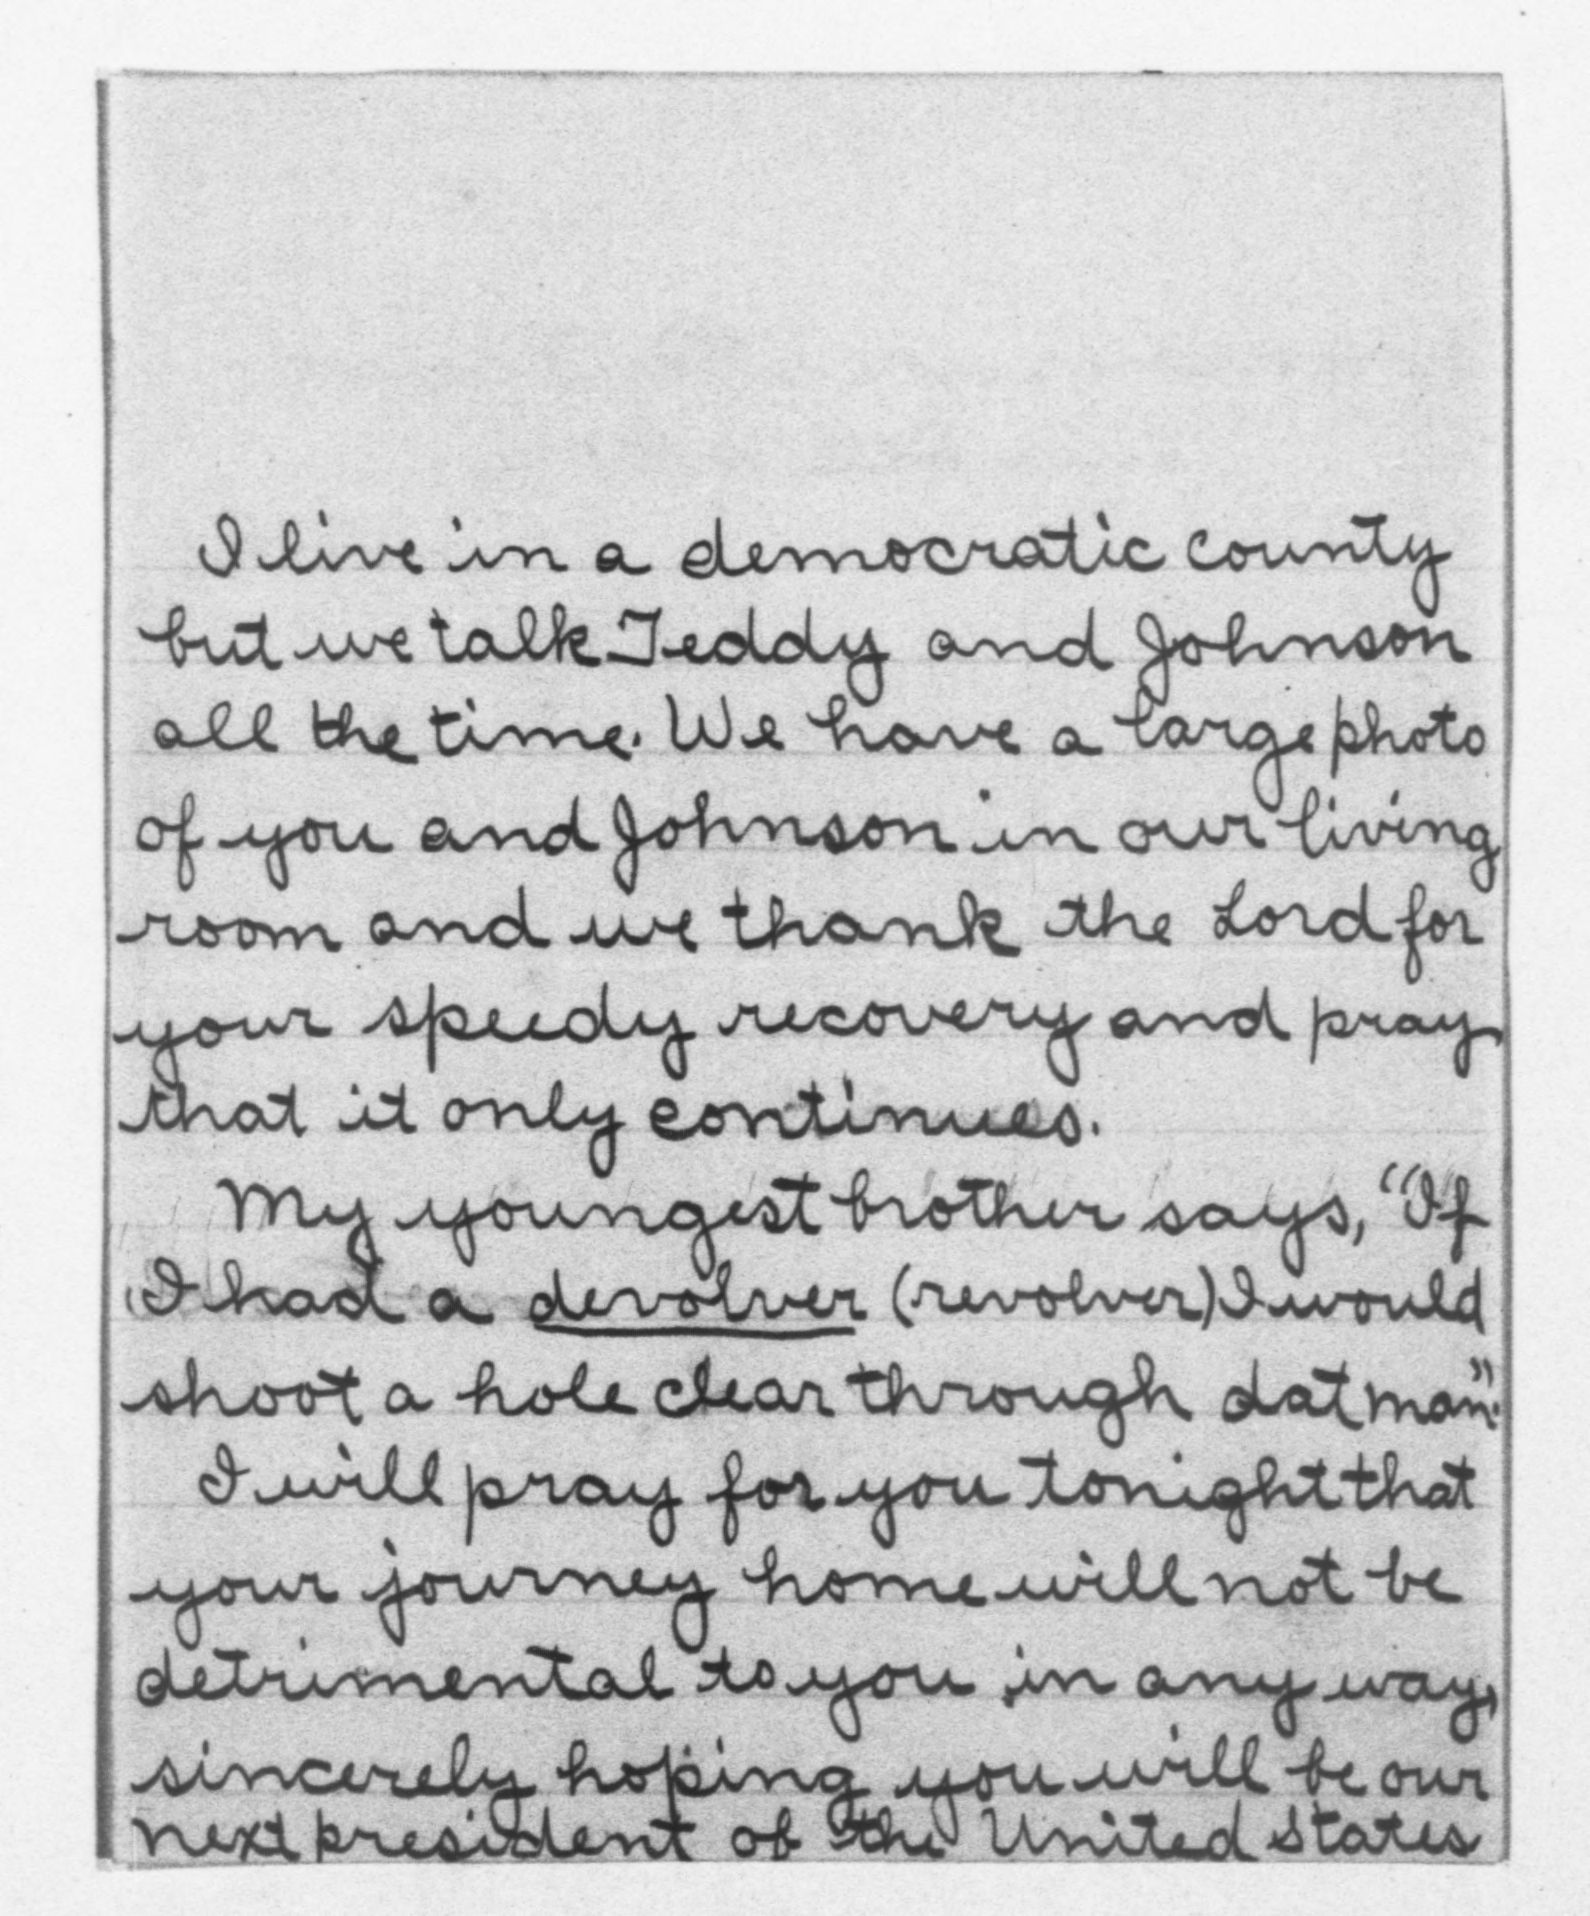 I live in a democratic county
but we talk Teddy and Johnson
all the time. We have a large photo
of you and Johnson in our living
room and we thank the Lord for
your speedy recovery and pray
that it only continues.
My youngest brother says, "If
I had a devolver (revolver) I would
shoot a hole clear through dat man".
I will pray for you tonight that
your journey home will not be
detrimental to you in any way,
sincerely hoping you will be our
next president of the United States